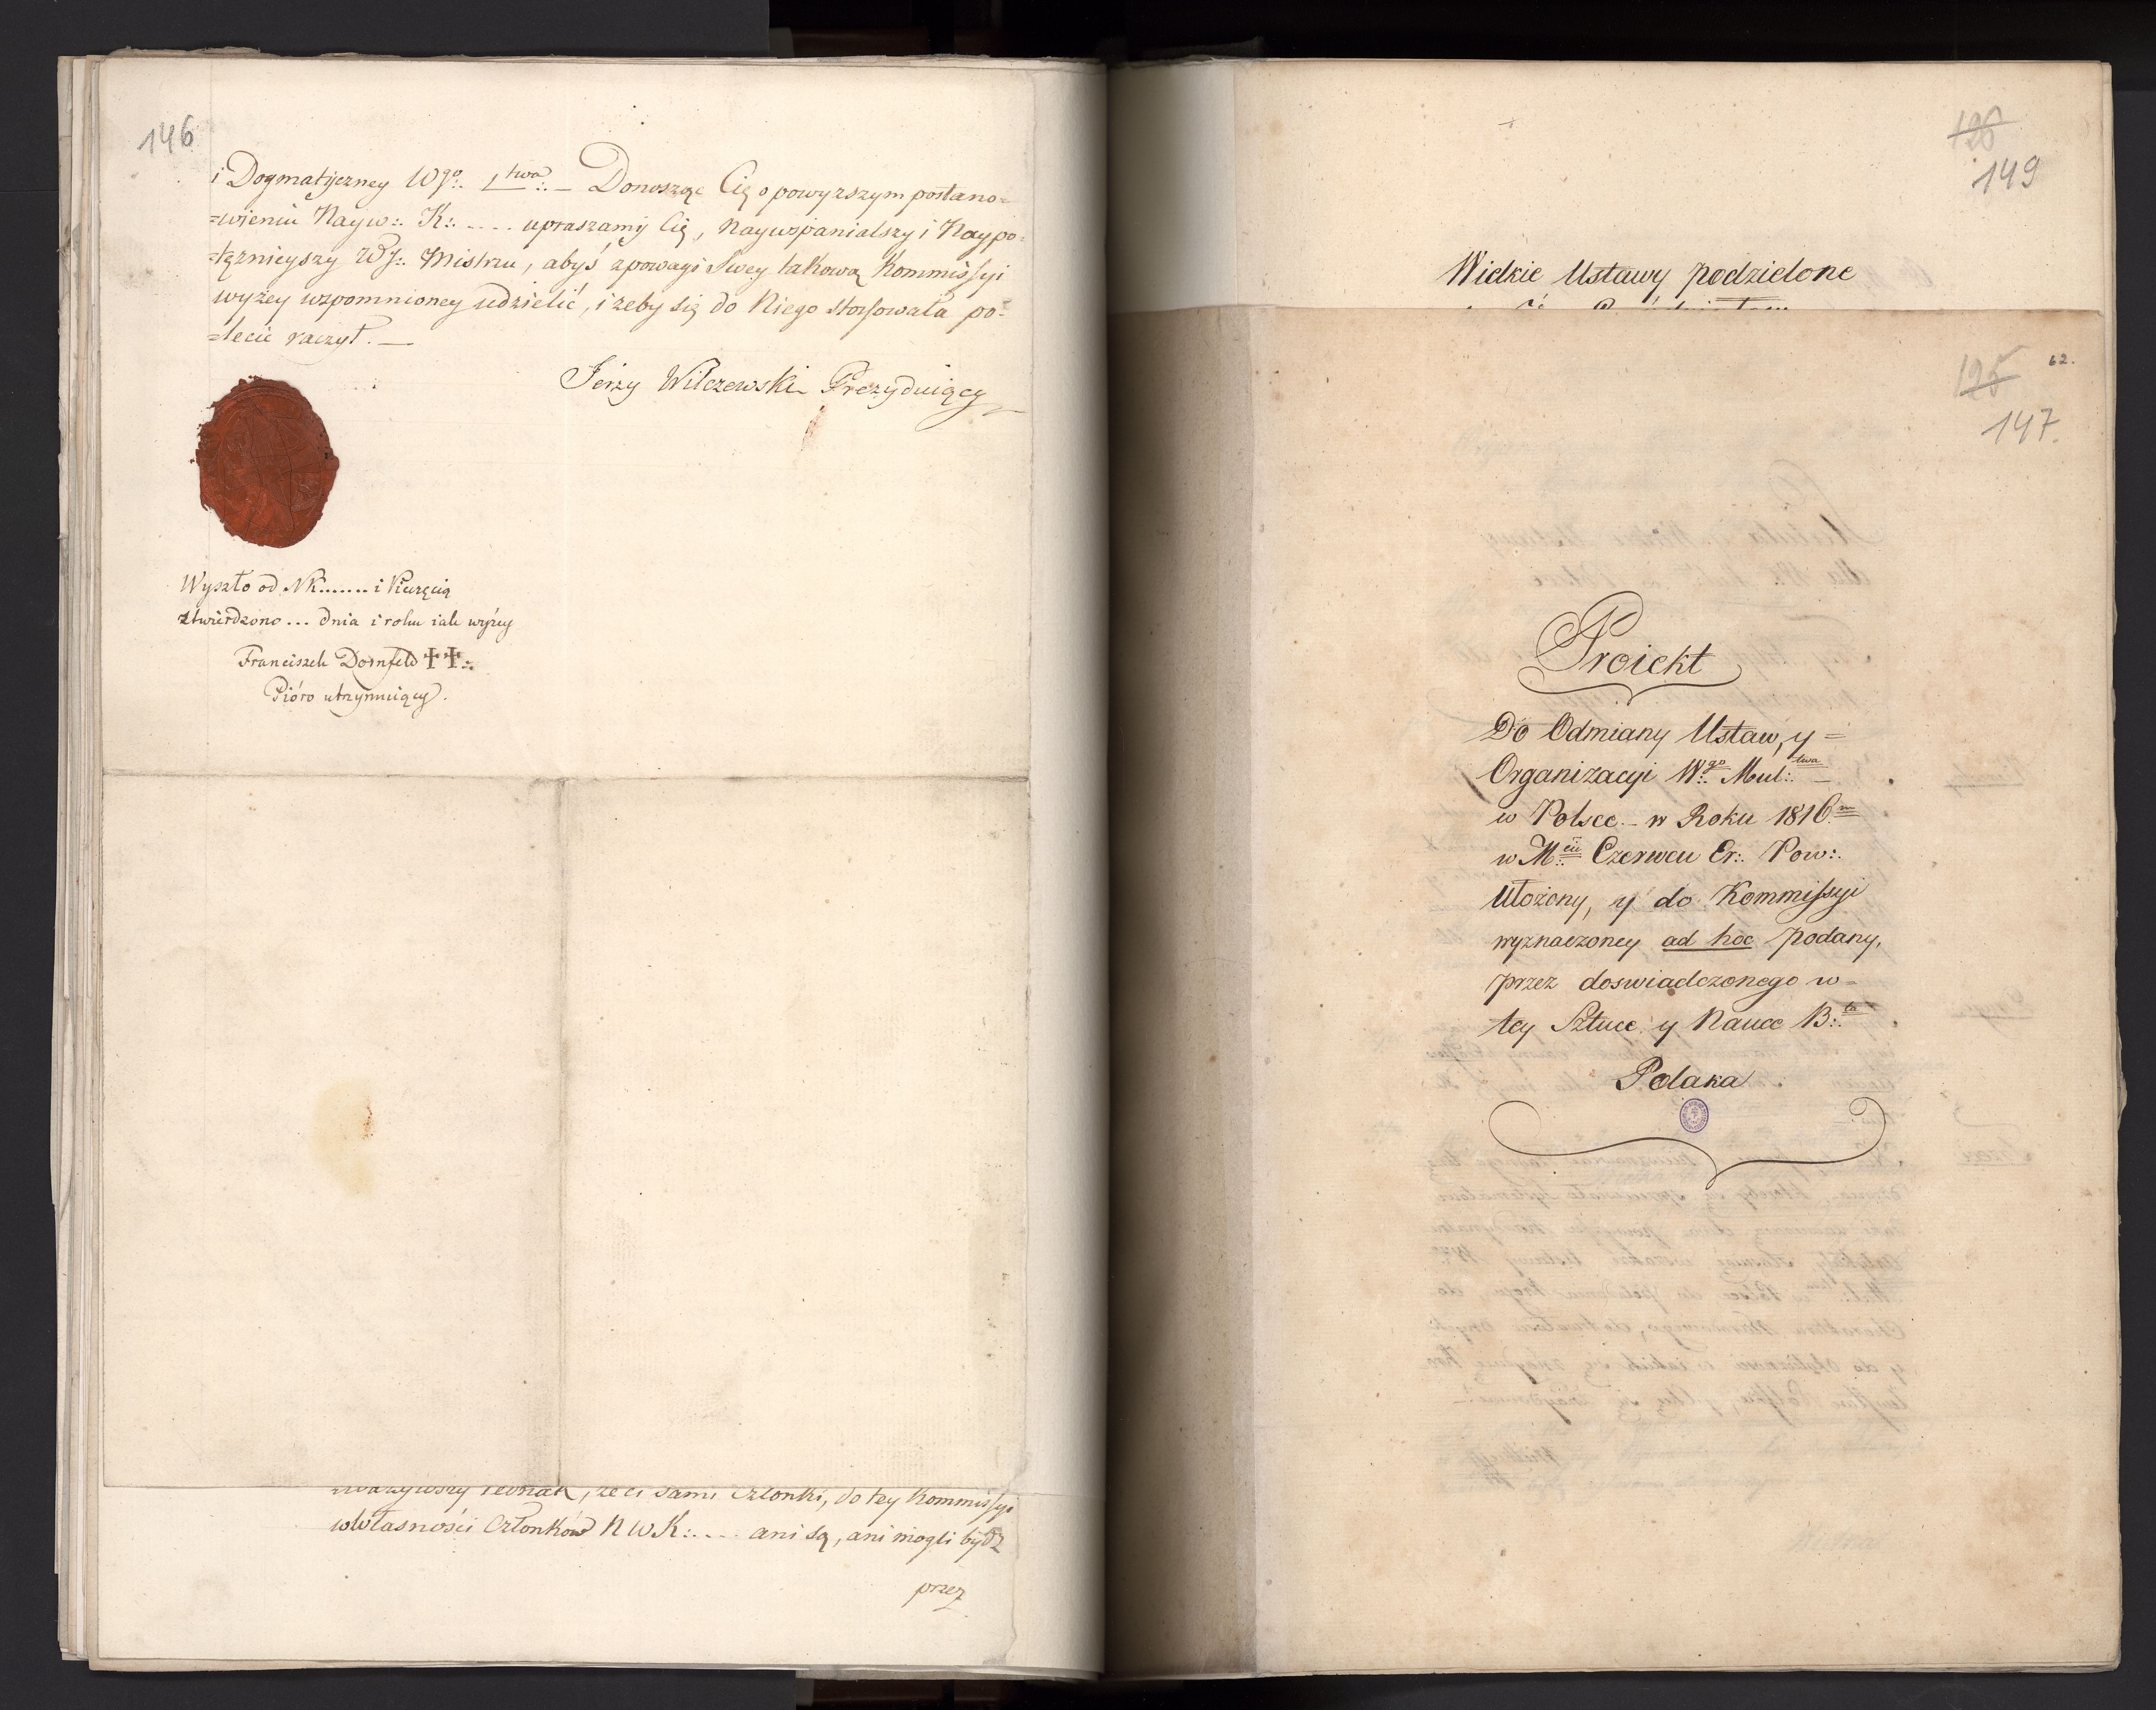 146
i Dogmatyczney Wgo:. 1twa:. – Donosząc Cię o powyzszym postano=
=wieniu Nayw:. K:. .... upraszamy Cię, Naywspanialszy i Naypo=
=tęznieyszy WJ:. Mistrzu, abyś z powagi Swey takową Kommissyi
wyżey wzpomnioney udzielić, i zeby się do Niego stosowała po=
=lecić raczył. —
Jerzy Wilczewski Prezyduiący
Wyszło od NK ....... i Pieczęcią
ztwierdzono ... dnia i roku iak wyżey
Franciszek Dornfeld ‡‡:.
Pióro utrzymuiący.
zwazywszy iednak, ze ci sami Członki, do tey Kommissyi
wWłasności Członków NWK:. .... ani są, ani mogli bydz
przez
126
149
Wielkie Ustawy podzielone
125 62.
147.
Proiekt
Do Odmiany Ustaw, y =
Organizacyi W:go Mul:.twa –
w Polsce – w Roku 1816m
w M:cu Czerwcu Er:. Pow:.
Ułożony, y do Kommissyi
wyznaczoney ad hoc podany,
przez doswiadczonego w=
tey Sztuce y Nauce B:.ta
Polaka